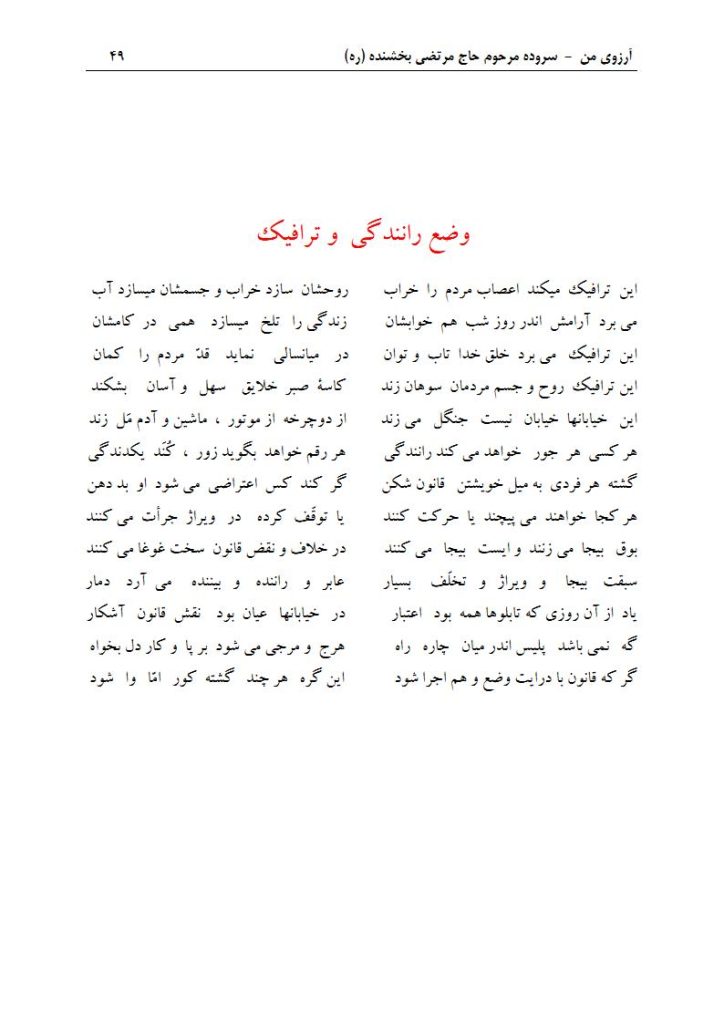 آرزوی من - سروده مرحوم حاج مرتضی بخشنده (ره) ۴۹
وضع رانندگی و ترافیک
این ترافیک میکند اعصاب مردم را خراب روحشان سازد خراب و جسمشان میسازد آب
می برد آرامش اندر روز شب هم خوابشان زندگی را تلخ میسازد همی در کامشان
این ترافیک می برد خلق خدا تاب و توان در میانسالی نماید قدّ مردم را کمان
این ترافیک روح و جسم مردمان سوهان زند کاسهٔ صبر خلایق سهل و آسان بشکند
این خیابانها خیابان نیست جنگل می زند از دوچرخه از موتور ، ماشین و آدم مَل زند
هر کسی هر جور خواهد می کند رانندگی هر رقم خواهد بگوید زور ، کُنَد یکدندگی
گشته هر فردی به میل خویشتن قانون شکن گر کند کس اعتراضی می شود او بد دهن
هر کجا خواهند می پیچند یا حرکت کنند یا توقّف کرده در ویراژ جرأت می کنند
بوق بیجا می زنند و ایست بیجا می کنند در خلاف و نقض قانون سخت غوغا می کنند
سبقت بیجا و ویراژ و تخلّف بسیار عابر و راننده و بیننده می آرد دمار
یاد از آن روزی که تابلوها همه بود اعتبار در خیابانها عیان بود نقش قانون آشکار
گه نمی باشد پلیس اندر میان چاره راه هرج و مرجی می شود بر پا و کار دل بخواه
گر که قانون با درایت وضع و هم اجرا شود این گره هر چند گشته کور امّا وا شود